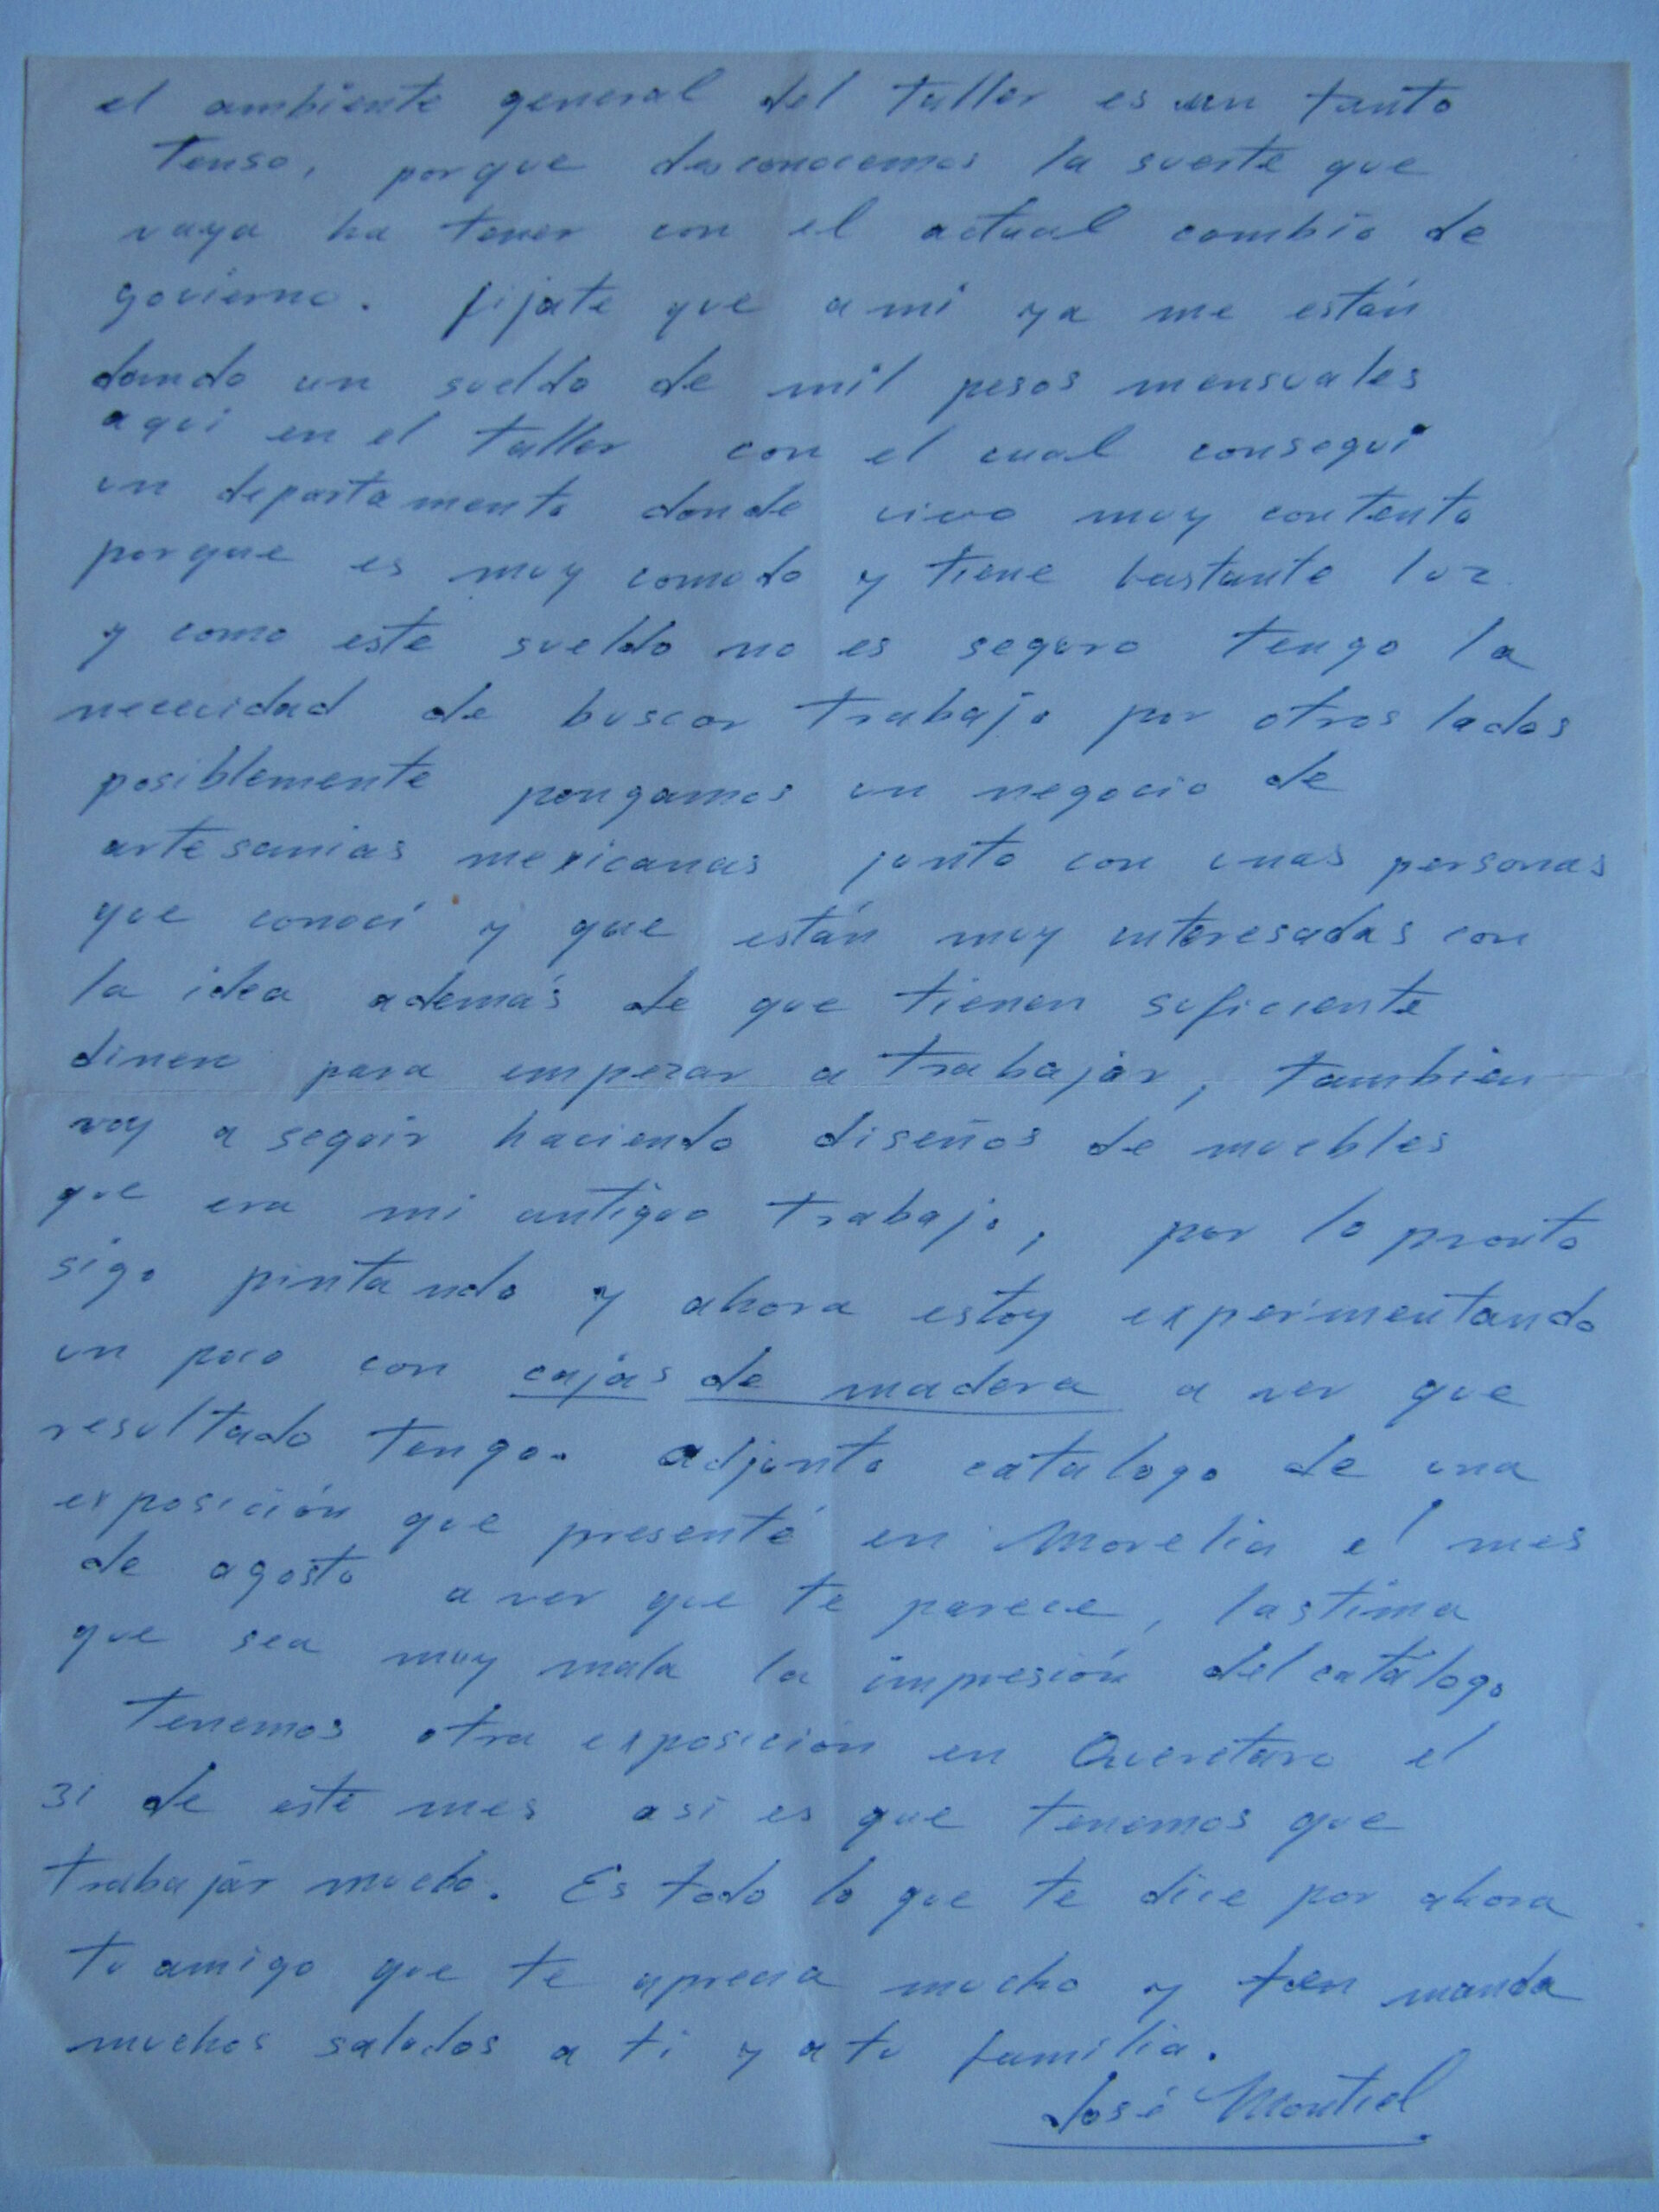 el ambiente general del taller es un tanto
tenso, porque desconocemos la suerte que
vaya ha tener con el actual cambio de
govierno. fijate que a mi ya me están
dando un sueldo de mil pesos mensuales
aqui en el taller con el cual consegui
un departamento donde vivo muy contento
porque es muy comodo y tiene bastante luz
y como este sueldo no es seguro tengo la
nececidad de buscar trabajo por otros lados
posiblemente pongamos un negocio de
artesanias mexicanas junto con unas personas
que conocí y que están muy interesadas con
la idea además de que tienen suficiente
dinero para empezar a trabajar, tambien
voy a seguir haciendo diseños de muebles
que era mi antiguo trabajo, por lo pronto
sigo pintando y ahora estoy experimentando
un poco con cajas de madera a ver que
resultado tengo. adjunto catalogo de una
exposición que presenté en Morelia el mes
de agosto a ver que te parece, lastima
que sea muy mala la impresión del catálogo
Tenemos otra exposición en Queretaro el
31 de este mes asi es que tenemos que
trabajar mucho. Es todo lo que te dice por ahora
tu amigo que te aprecia mucho y manda
muchos saludos a ti y a tu familia.
José Montiel